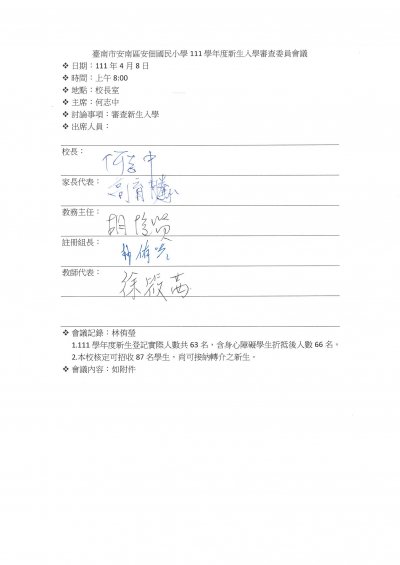 臺南市安南區安佃國民小學 111 學年度新生入學審查委員會議
❖ 日期：111 年 4 月 8 日
❖ 時間：上午 8:00
❖ 地點：校長室
❖ 主席：何志中
❖ 討論事項：審查新生入學
❖ 出席人員：
校長：何志中
家長代表：
教務主任：胡俊賢
註冊組長：林侑瑩
教師代表：徐筱茜
❖ 會議記錄：林侑瑩
1.111 學年度新生登記實際人數共 63 名，含身心障礙學生折抵後人數 66 名。
2.本校核定可招收 87 名學生，尚可接納轉介之新生。
❖ 會議內容：如附件